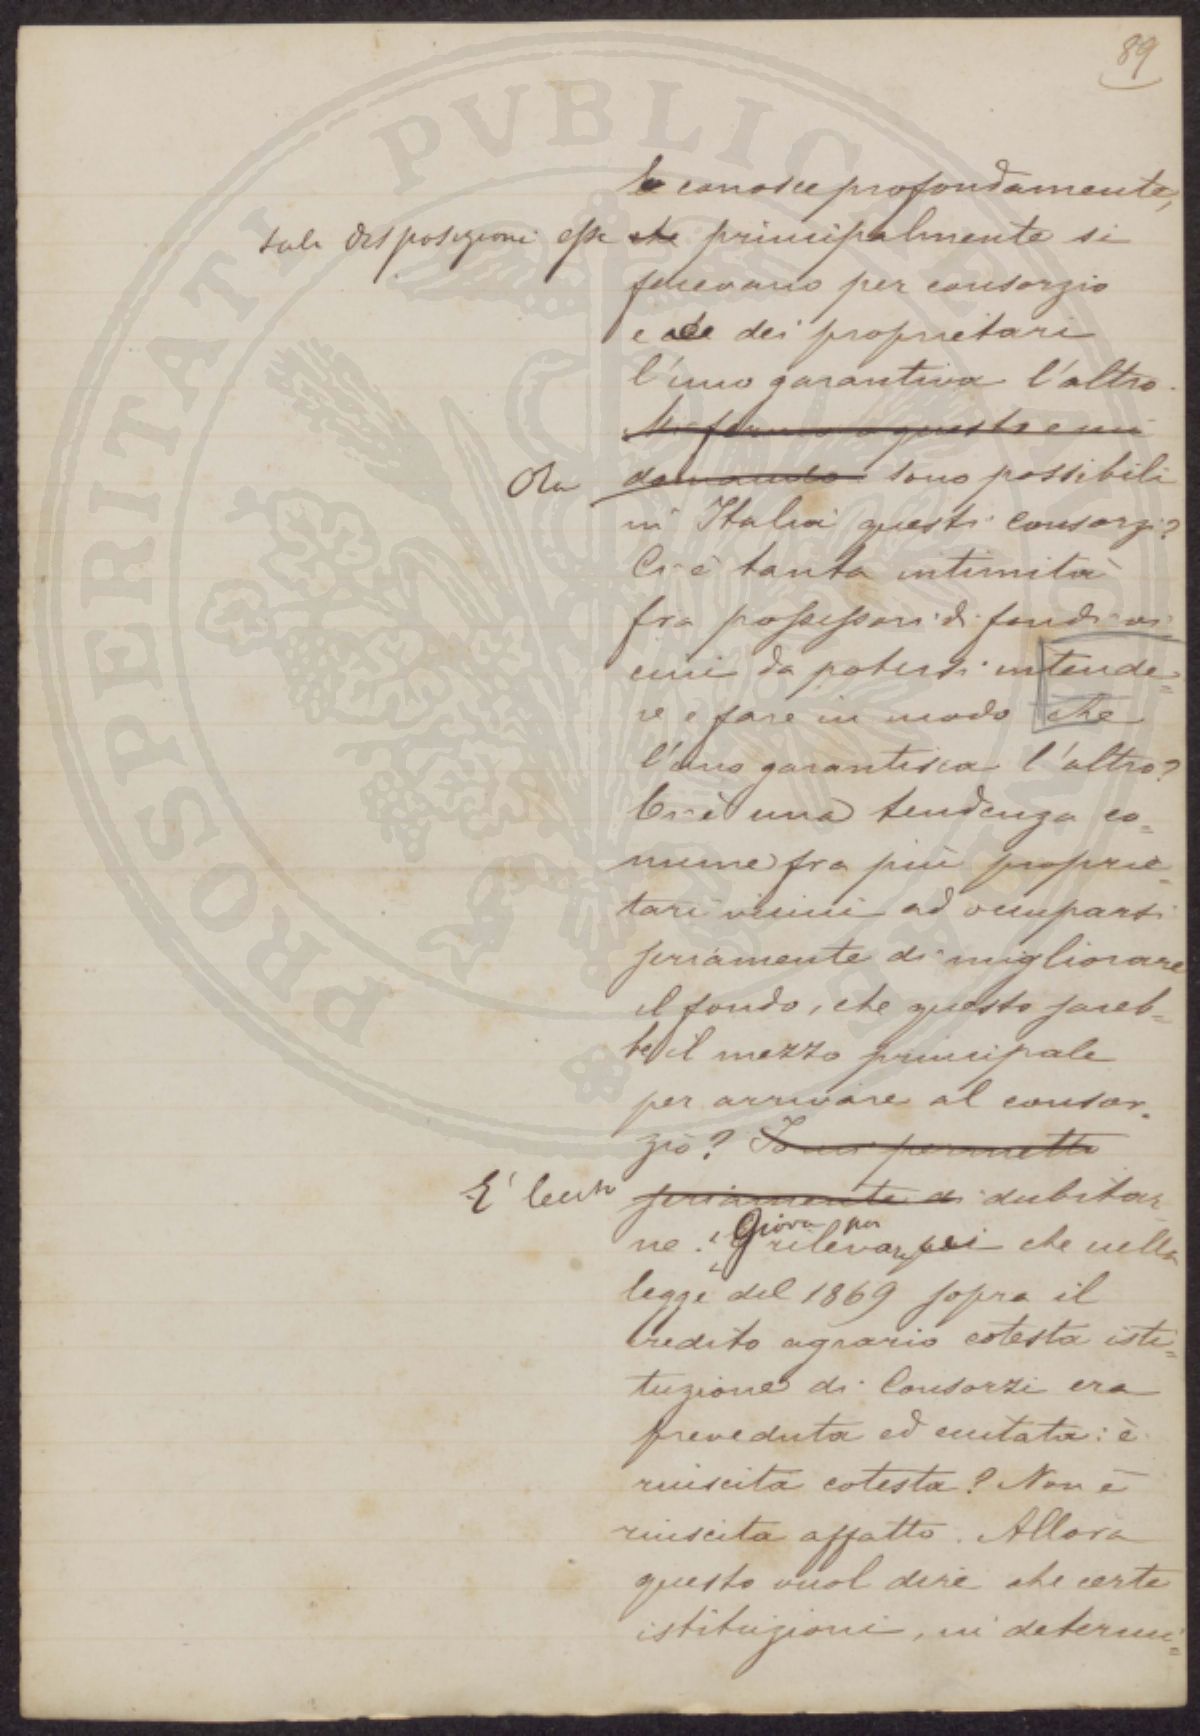 89
lo conosce profondamente,
tali disposizioni esse che principalmente si
facevano per consorzio
e che dei proprietari
l'uno garantiva l'altro.
Mi fermo a questo e mi
Ora domando sono possibili
in Italia questi consorzi?
Ci è tanta intimità
fra possessori di fondi vi
cini da potersi intende=
re e fare in modo che
l'uno garantisca l'altro?
Ci è una tendenza co=
mune fra più proprie=
tari vicini ad occuparsi
seriamente di migliorare
il fondo, che questo sareb=
be il mezzo principale
per arrivare al consor=
zio? Io mi permetto
E' lecito seriamente di dubitar
ne. Giova poi
rilevare che nella
legge del 1869 sopra il
credito agrario cotesta isti=
tuzione di Consorzi era
preveduta ed : è
riuscita cotesta? Non è
riuscita affatto. Allora
questo vuol dire che certe
istituzioni, in determi=
PROSPERITATI PVBLICAE